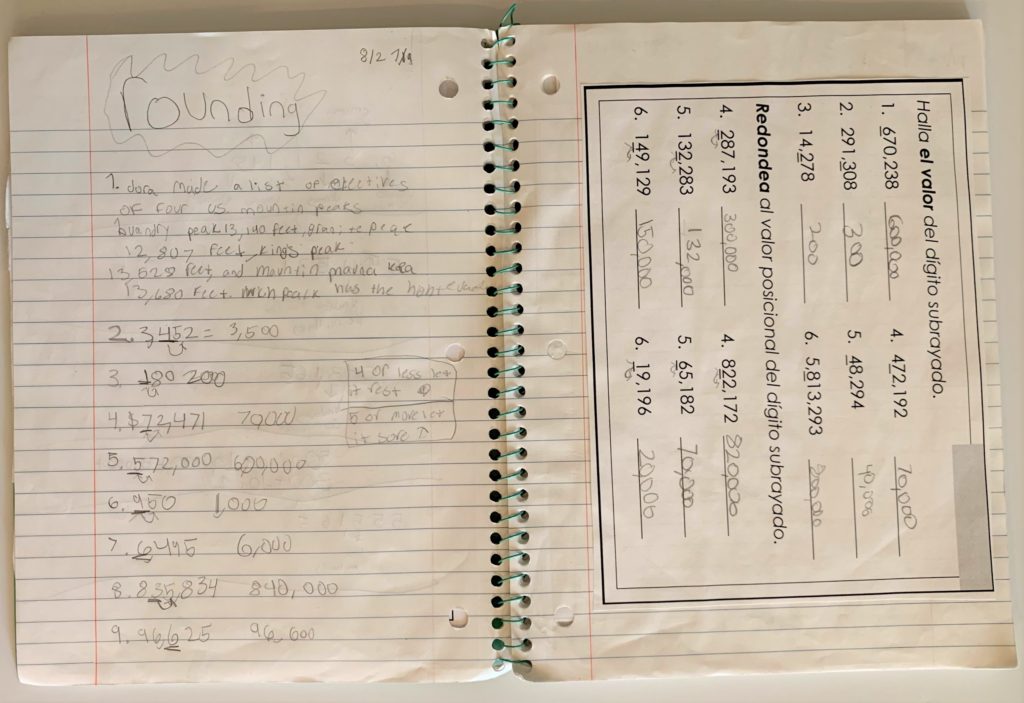 8/2
rounding
1. dora made a list of eletives
OF four us. mountin peaks
peak 13,140 feet, granite peak
12,807 feet, kings peak
13,528 feet, and mountin
13,680 feet. which peak has the
2. 3,452 = 3,500
3. 180 200
4 or less let
it rest
4. $72,471 70,000
5 or more let
it sore ↑
5. 572,000 600,000
6. 950 1,000
7. 6495 6,000
8. 835,834 840,000
9. 96,625 96,600
Halla el valor del dígito subrayado.
1. 670,238 600,000 4. 472,192 70,000
2. 291,308 300 5. 48,294 40,000
3. 14,278 200 6. 5,813,293 800,000
Redondea al valor posicional del dígito subrayado.
4. 287,193 300,000 4. 822,172 820,000
5. 132,283 132,000 5. 65,182 70,000
6. 149,129 150,000 6. 19,196 20,000